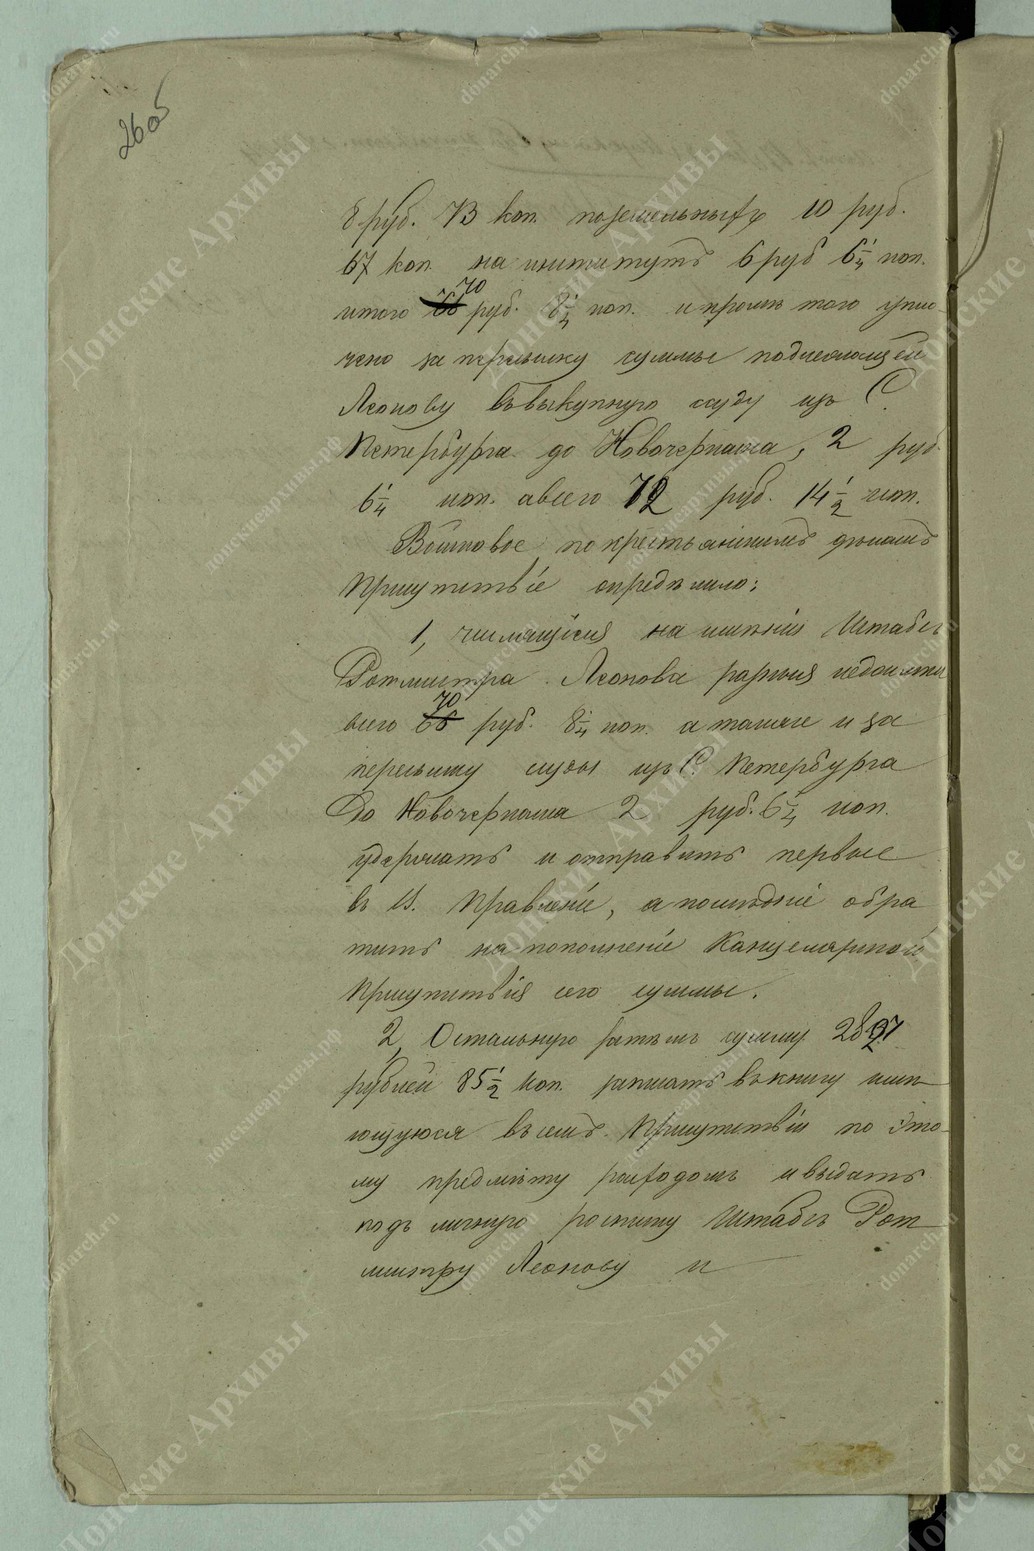 26 об
8 руб. 73 коп. поземельныхъ 10 руб.
67 коп. на институтъ 6 руб 6 1/4 коп.
итого 70 руб. 8 1/4 коп. и кроме того упло-
чено за пересылку суммы подлежащей
Леонову въ выкупную ссуду изъ С.
Петербурга до Новочеркаска, 2 руб.
6 1/4 коп. а всего 72 руб. 14 1/2 коп.
Войсковое по крестьянскимъ деламъ
Присутствіе определило:
1, числящіяся на именіи Штабсъ
Ротмистра Леонова разныя недоимки
всего 70 руб. 8 1/4 коп. а также и за
пересылку ссуды изъ С. Петербурга
до Новочеркаска 2 руб. 6 1/4 коп.
удержать и отправить первые
въ В. Правленіе, а последніе обра
тить на пополненіе Канцелярской
Присутствія сего суммы.
2, Остальную затемъ сумму 2827
рублей 85 1/2 коп. записать въ книгу име
ющуюся въ семъ Присутствіи по это-
му предмету расходомъ и выдать
подъ личную росписку Штабсъ Рот
мистру Леонову и